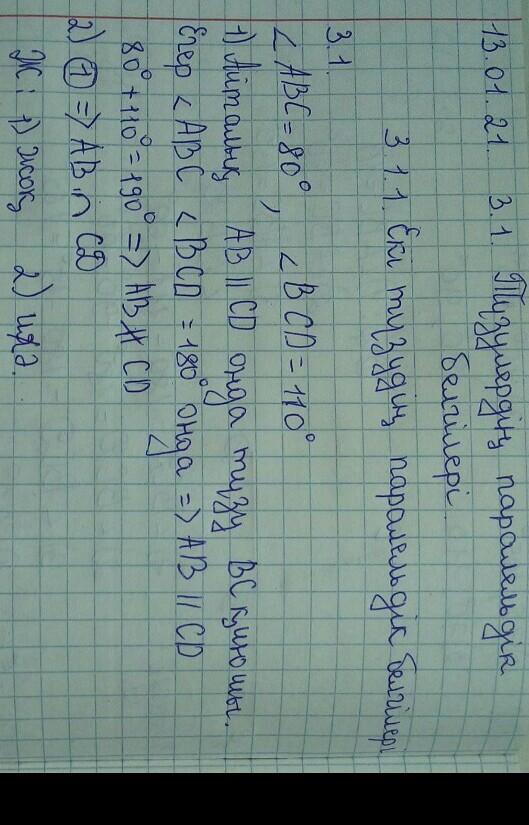 13.01.21. 3.1. Түзулердің паралельдік
белгілері.
3.1.1. Екі түзудің паралельдік белгілері
3.1.
<ABC=80°, <BCD=110°
1) Айталық AB || CD онда түзу BC қиюшы.
Егер <ABC <BCD =180° онда => AB || CD
80°+110°=190° => AB ∦ CD
2) ① => AB ∩ CD
Ж: 1) жоқ 2) иә.